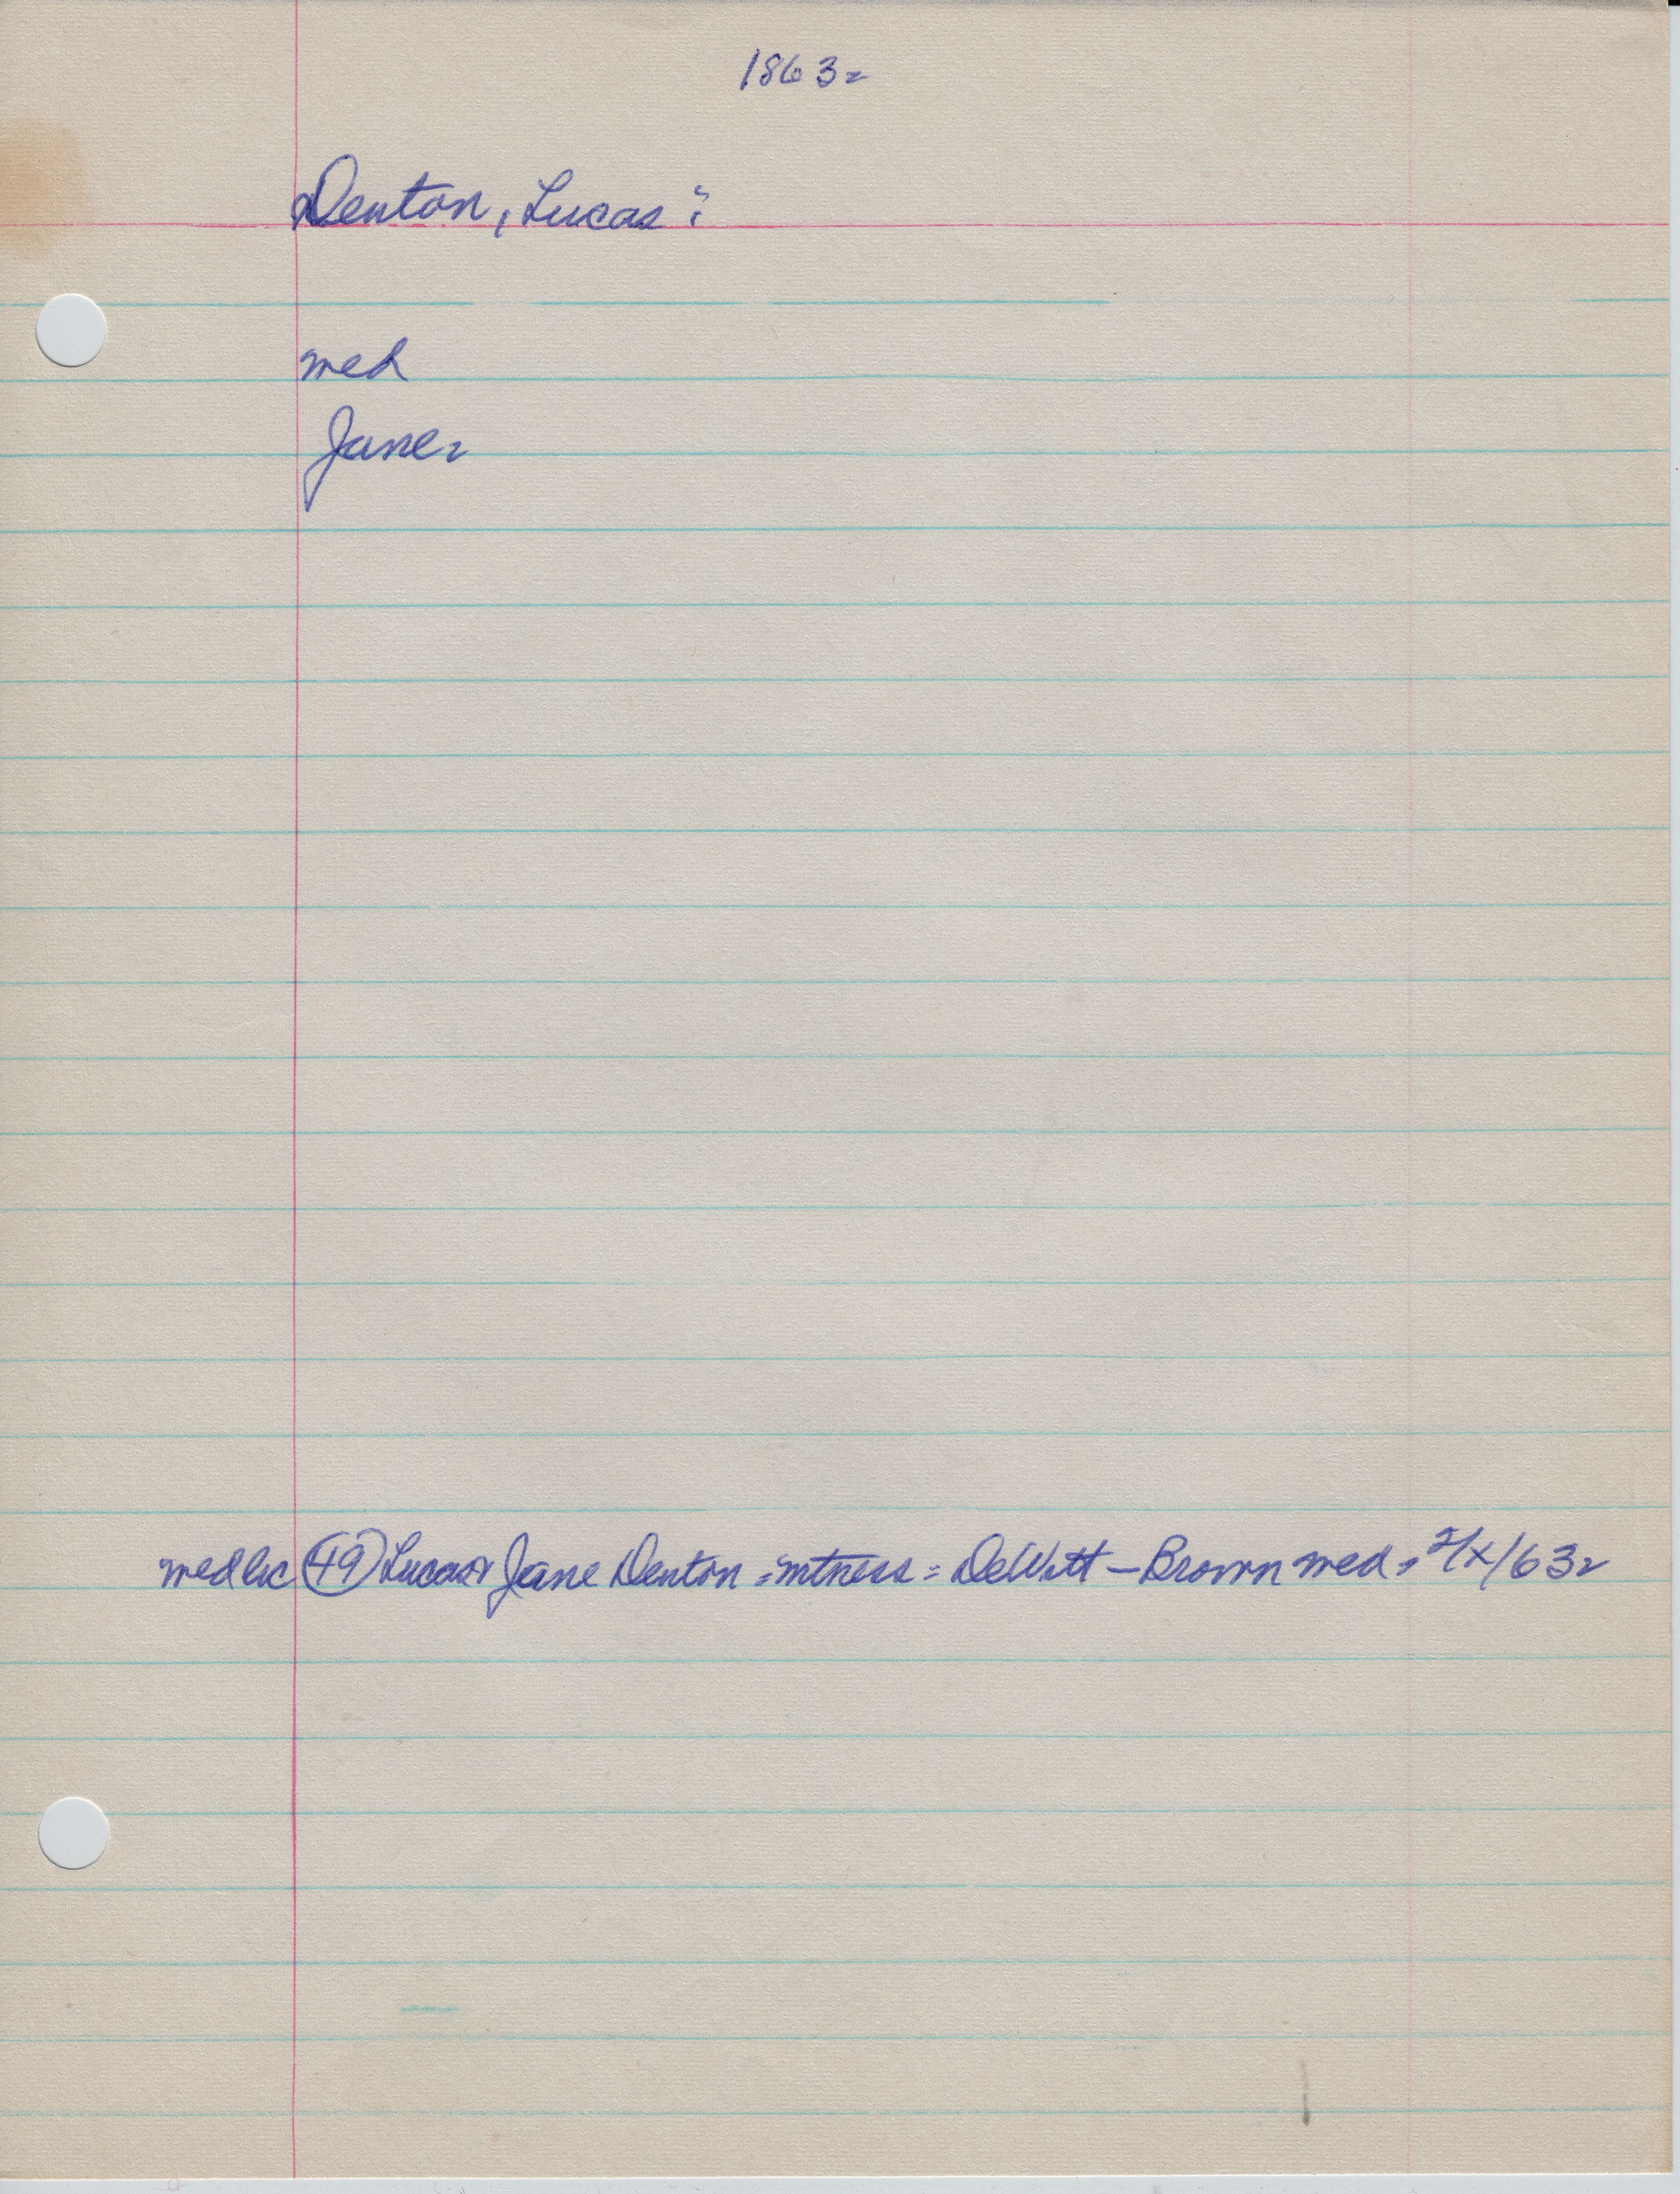 1863=
Denton, Lucas:
wed
Jane=
wed lic (49) Lucas & Jane Denton = witness = DeWitt - Brown wed = 2/X/63=